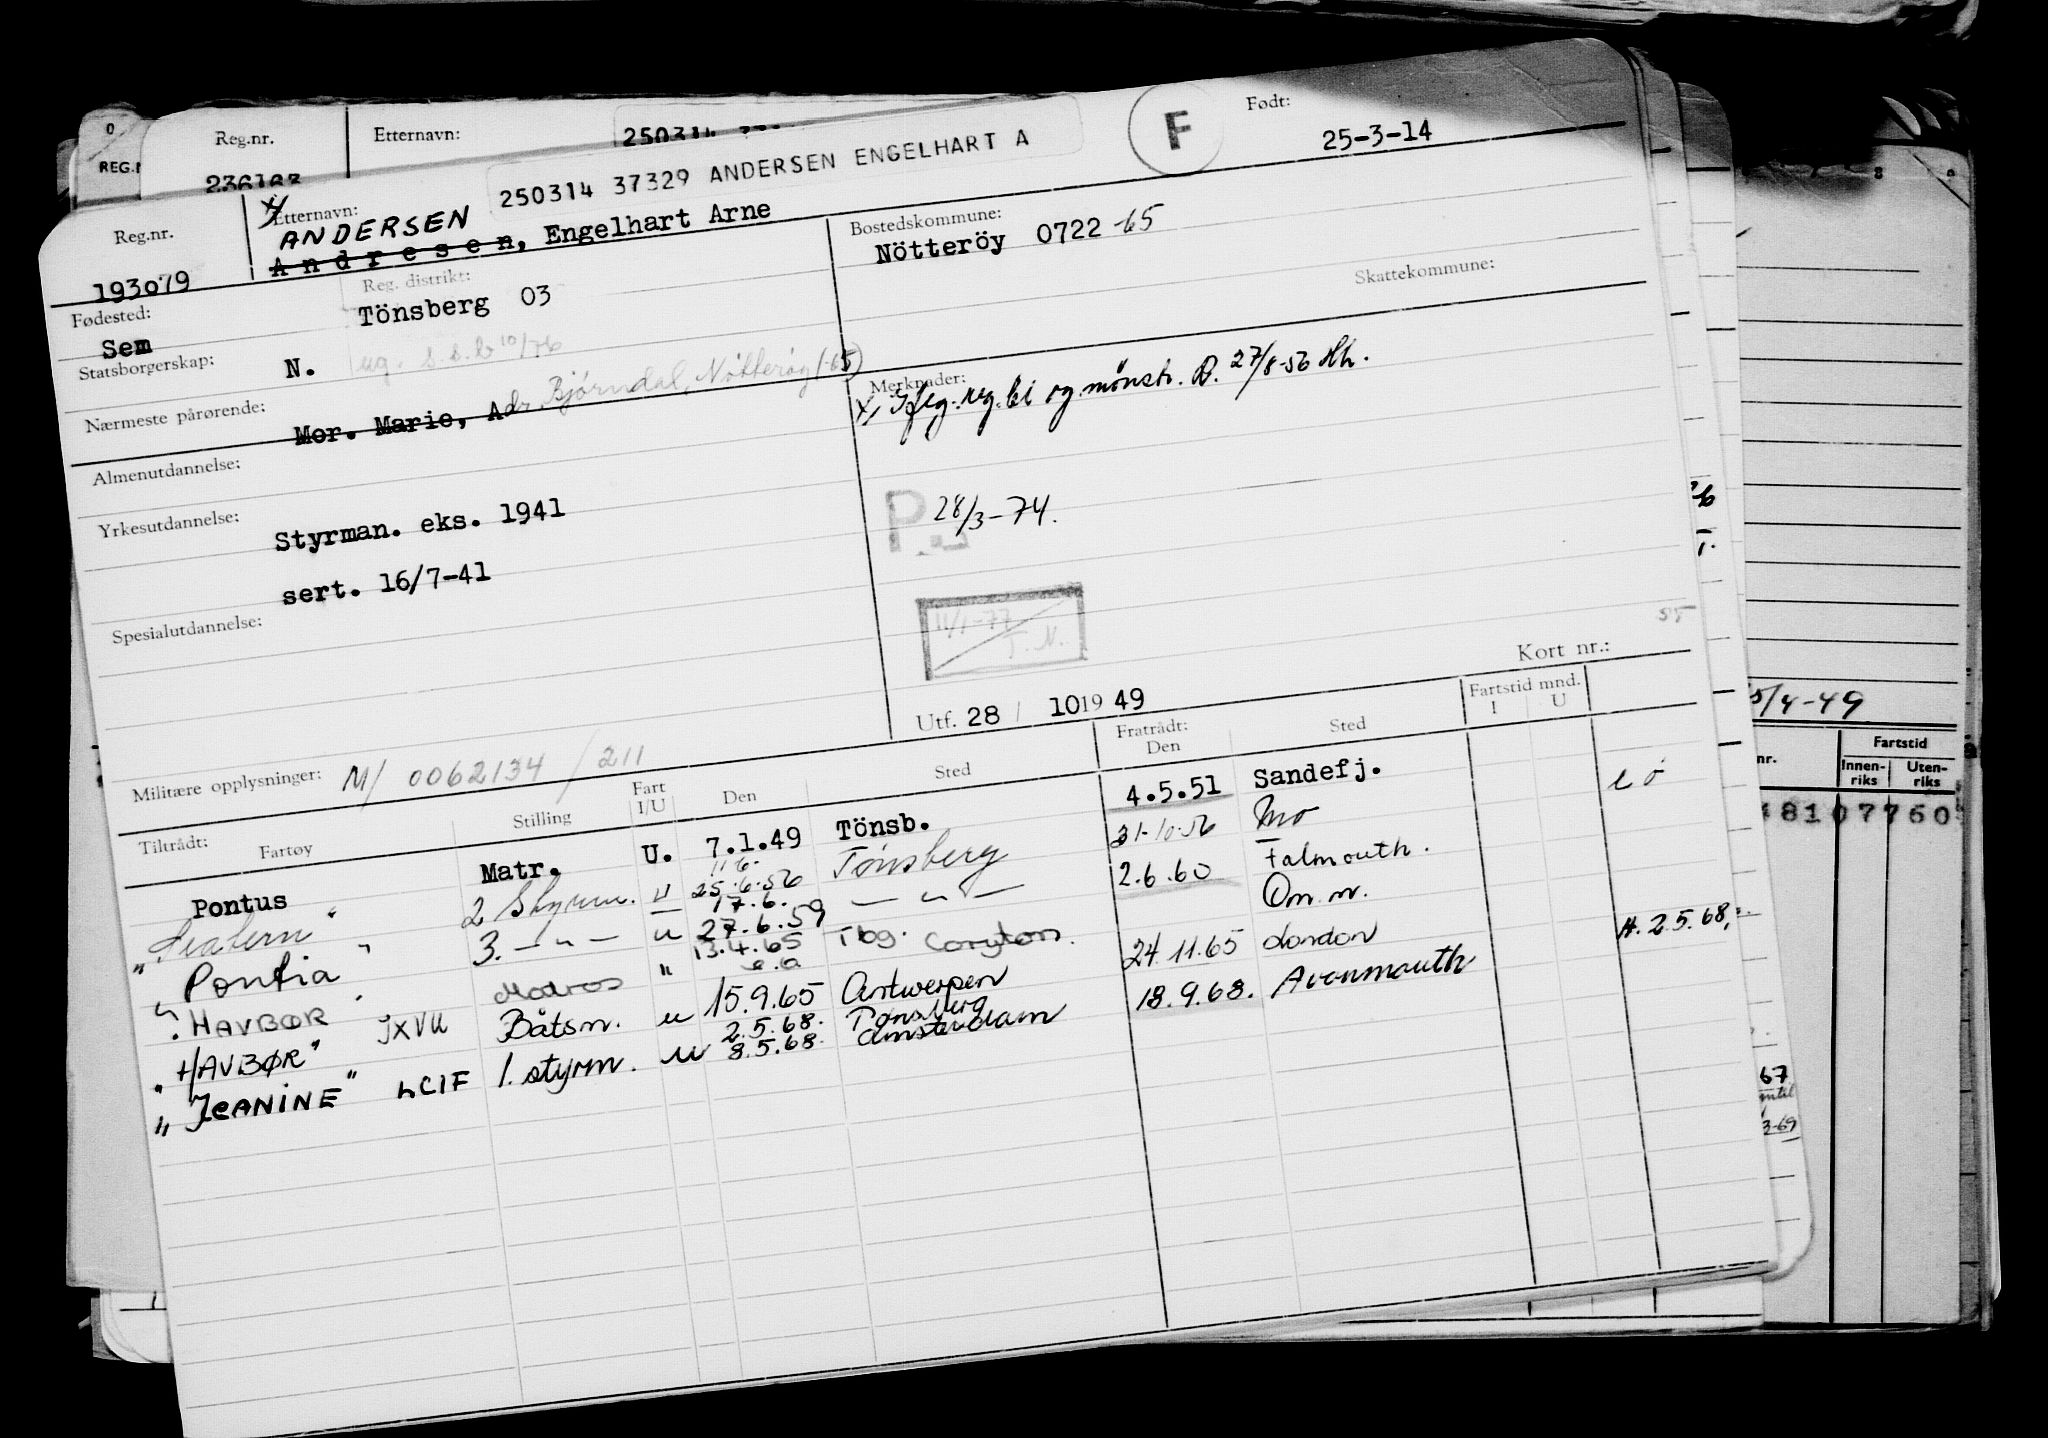 Reg.nr.
Etternavn:
Født:
REG.N
236107
250314
250314 37329 ANDERSEN ENGELHART A
F
25-3-14
Reg.nr.
193079
Etternavn:
ANDERSEN
Andresen, Engelhart Arne
Bostedskommune:
Nötteröy 0722 -65
Fødested:
Sem
Reg. distrikt:
Tönsberg 03
Skattekommune:
Statsborgerskap:
N.
Nærmeste pårørende:
Mor. Marie, Adr. Bjørndal, Nötteröy (-65)
Merknader:
x, Iflg. reg. bl og mönstr. 27/8-56
Almenutdannelse:
Yrkesutdannelse:
Styrman. eks. 1941
sert. 16/7-41
P 28/3-74.
Spesialutdannelse:
11/1-77
T. N.
55
Kort nr.:
Utf. 28 / 10 19 49
Militære opplysninger: M/ 0062134 / 211
Tiltrådt:
Fartøy
Stilling
Fart I/U
Den
Sted
Fratrådt:
Den
Sted
Fartstid mnd.
I U
Pontus Matr. U. 7.1.49 Tönsb. 4.5.51 Sandefj.
2 Styrm. u 25.6.56 Tönsberg 31-10-56 Mo
"Pontia" 3. — " — u 27.6.59 — " — 2.6.60 Falmouth.
"HAVBØR" Matros " 13.4.65 Tbg. Coryton.
"HAVBØR" JXVU Båtsm. u 15.9.65 Antwerpen 24.11.65 London
"JEANINE" LCIF 1. styrm. u 2.5.68. Tönsberg
8.5.68. Amsterdam 18.9.68. Avonmouth
2.5.68
5/4-49
nr.
Fartstid
Innen-riks
Uten-riks
48107760
67
3-69